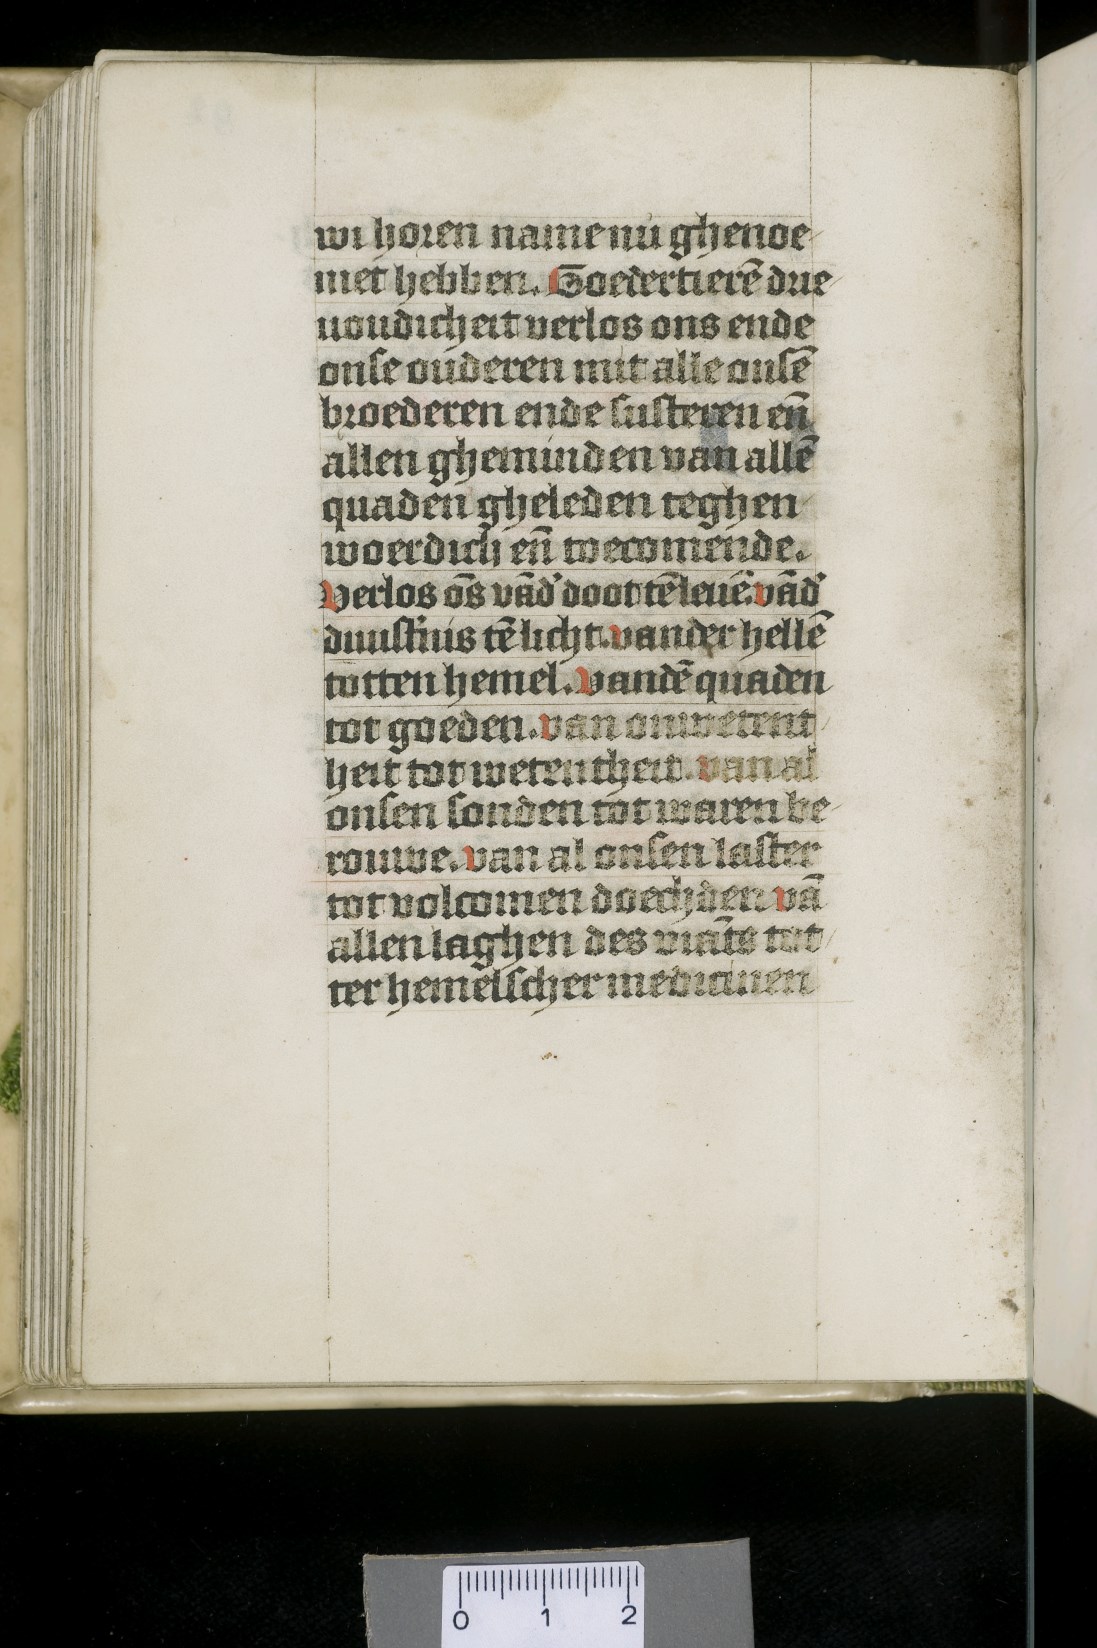 wi horen name nu ghenoe
met hebben. Goedertierē drie
uoudicheit verlos ons ende
onse ouderen mit alle onsē
broederen ende susteren eñ
allen gheminden van allē
quaden gheleden teghen
woerdich eñ toecomende.
Verlos ōs vād' doot tē leuē. vād'
duust'nis tē licht. vander hellē
totten hemel. Vandē quaden
tot goeden. van onwetent
heit tot wetentheit. van al
onsen sonden tot waren be
rouwe. van al onsen laster
tot volcomen doechden vā
allen laghen des viāts tot
ter hemelscher medicinen
0 1 2